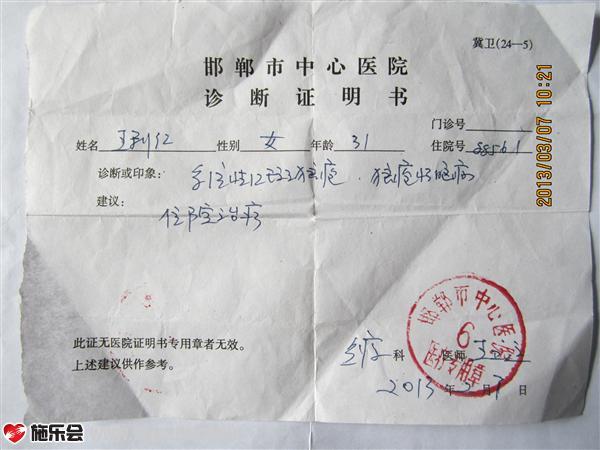 冀卫(24—5)
邯郸市中心医院
诊断证明书
门诊号
姓名 王利红 性别 女 年龄 31 住院号 88561
诊断或印象: 系统性红斑狼疮、狼疮性脑病
建议:
住院治疗
邯郸市中心医院
6
医疗专用章
此证无医院证明书专用章者无效。
上述建议供作参考。
科 医师 王
2013 年 3月 7 日
2013/03/07 10:21
施乐会